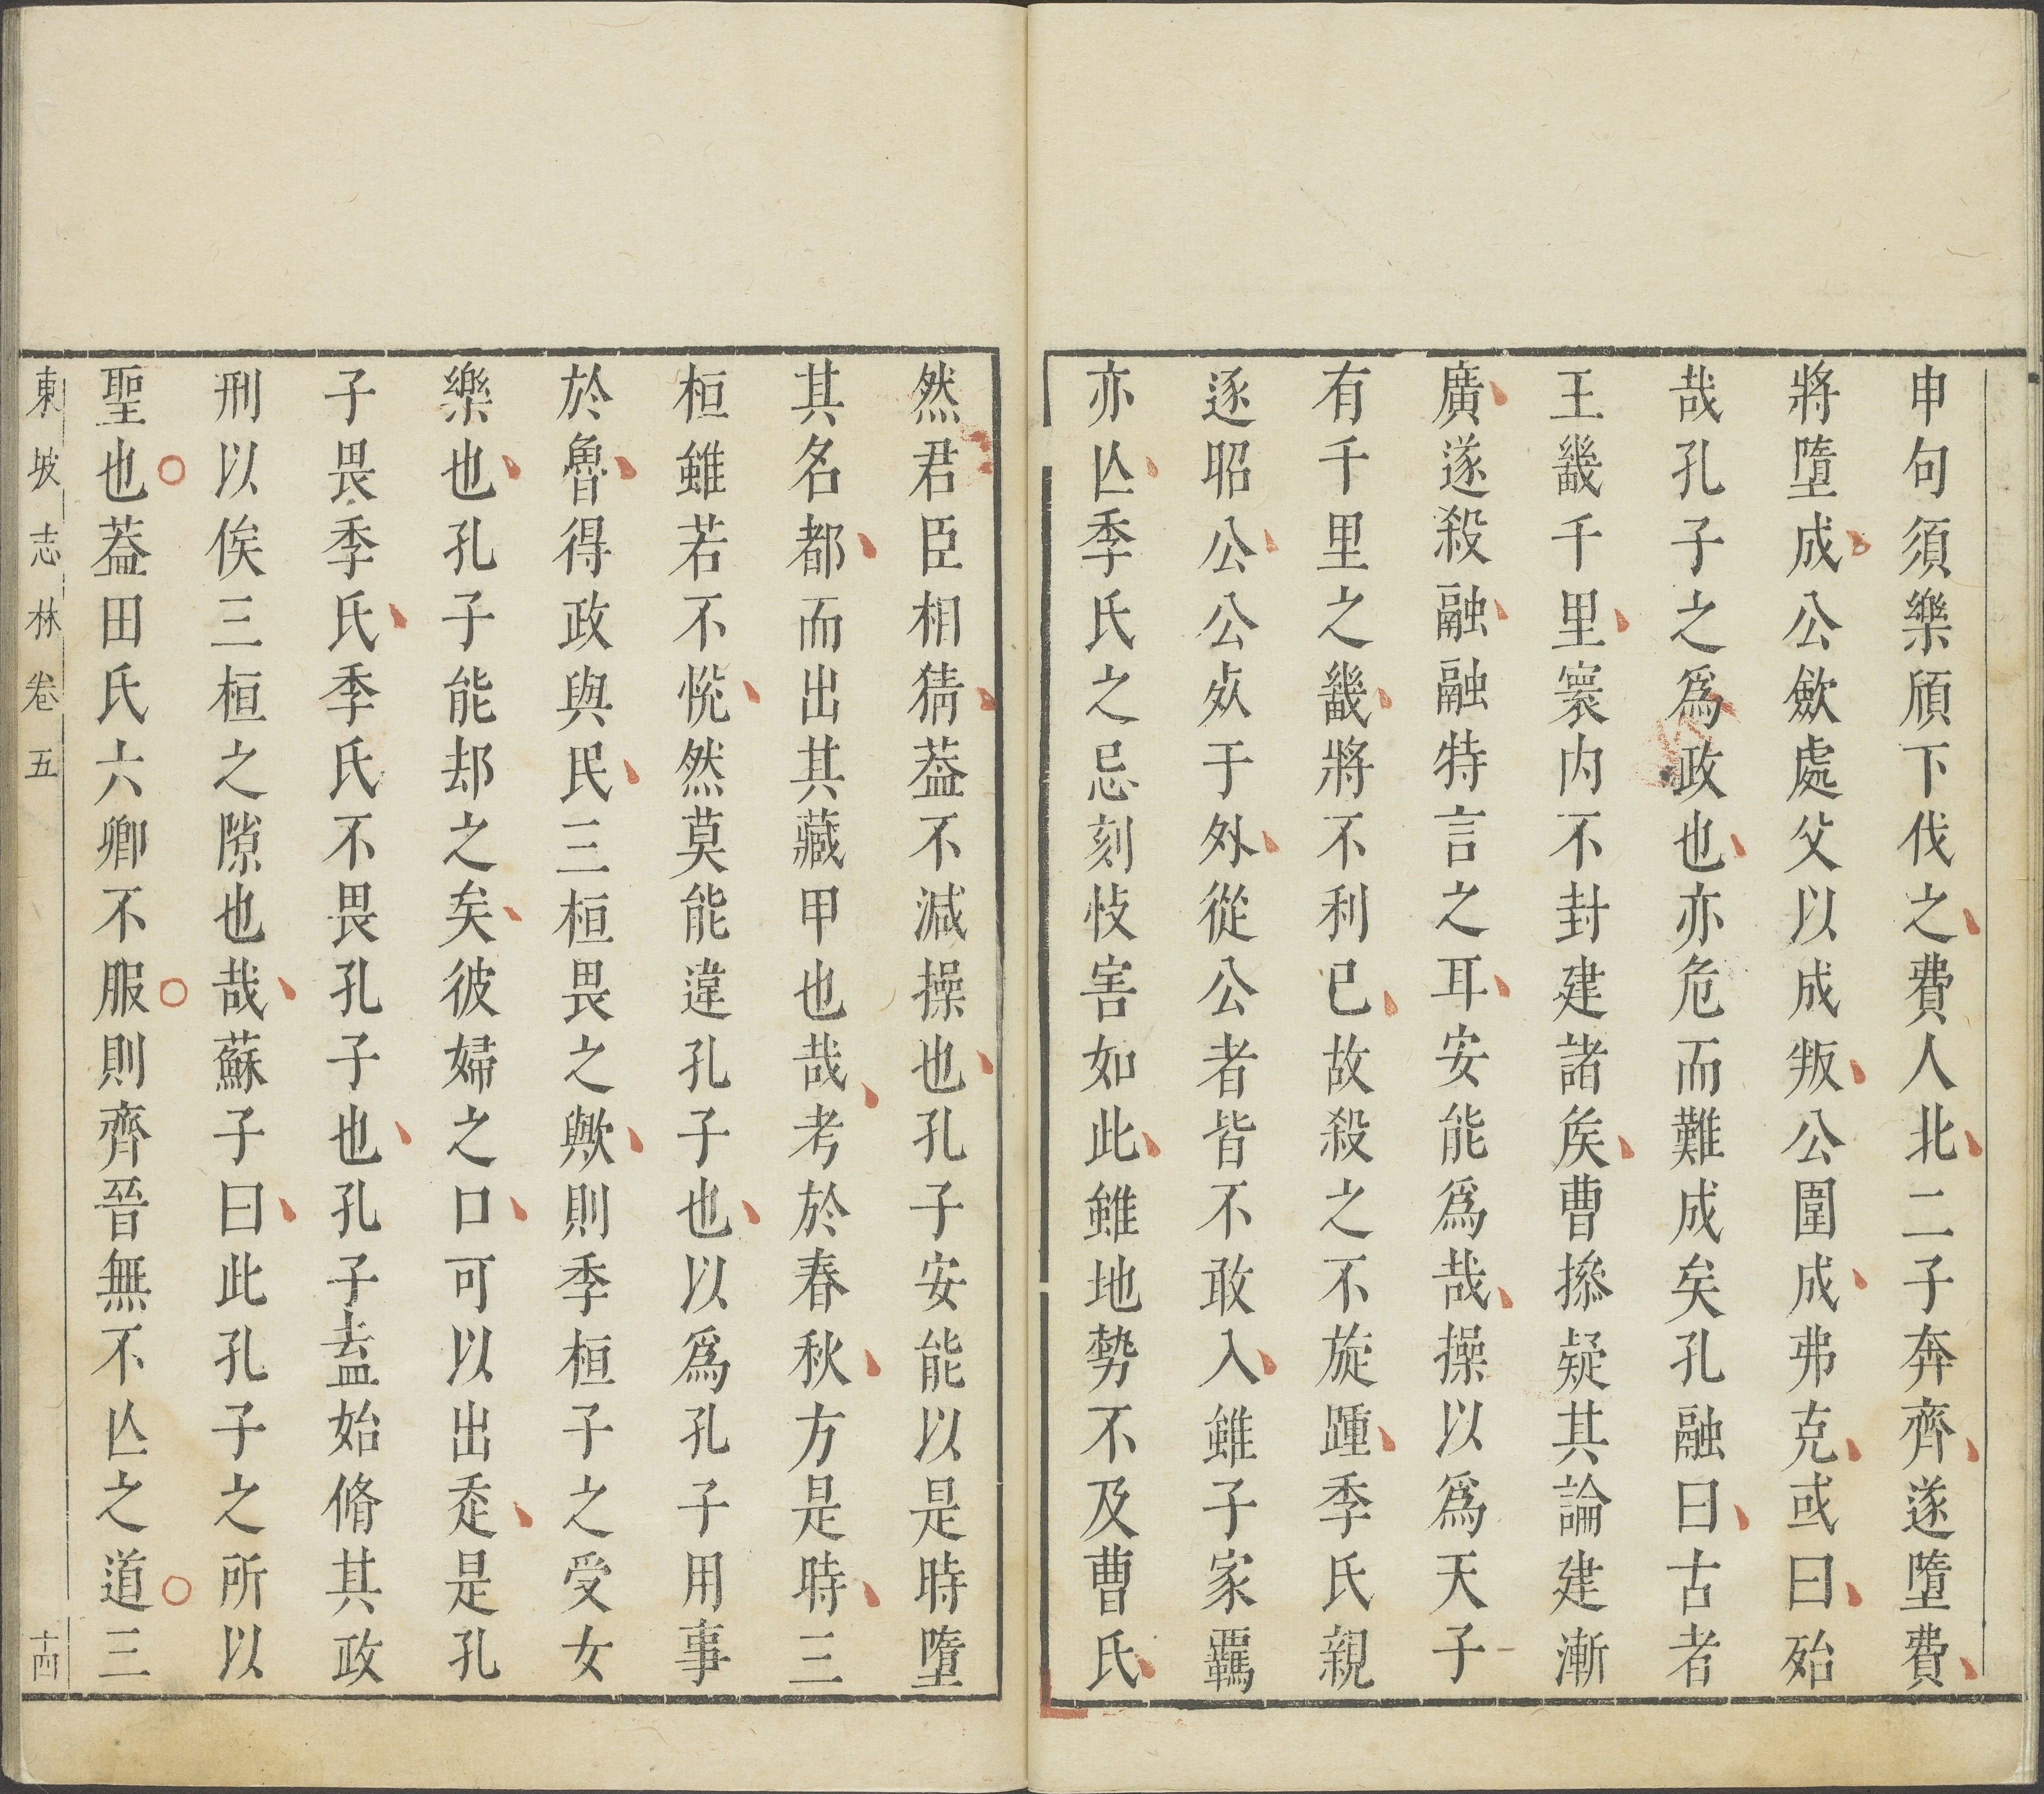 申句須樂頎下伐之費人北二子奔齊遂墮費
將墮成公歛處父以成叛公圍成弗克或曰殆
哉孔子之爲政也亦危而難成矣孔融曰古者
王畿千里寰内不封建諸矦曹操疑其論建漸
廣遂殺融融特言之耳安能爲哉操以爲天子
有千里之畿將不利已故殺之不旋踵季氏親
逐昭公公死于外從公者皆不敢入雖子家羈
亦亾季氏之忌刻忮害如此雖地勢不及曹氏
然君臣相猜葢不減操也孔子安能以是時墮
其名都而出其藏甲也哉考於春秋方是時三
桓雖若不悅然莫能違孔子也以爲孔子用事
於魯得政與民三桓畏之歟則季桓子之受女
樂也孔子能却之矣彼婦之口可以出走是孔
子畏季氏季氏不畏孔子也孔子盍始脩其政
刑以俟三桓之隙也哉蘇子曰此孔子之所以
聖也葢田氏六卿不服則齊晉無不亾之道三
東坡志林卷五 十四